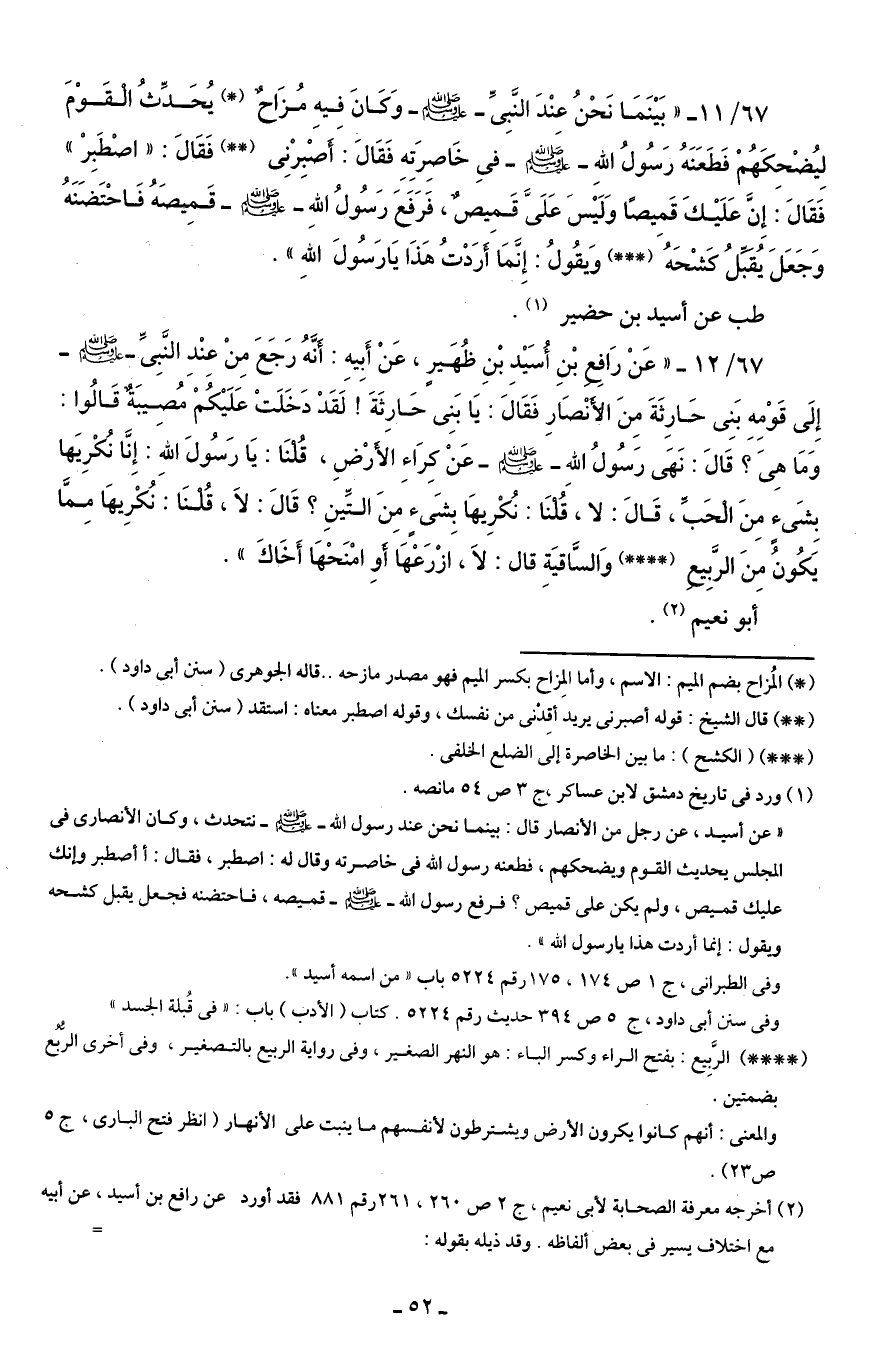 ٦٧/ ١١ـ « بَيْنَمَا نَحْنُ عِنْدَ النَّبِىِّ ـ ﷺ ـ وَكَانَ فِيهِ مُزَاحٌ (*) يُحَدِّثُ الْقَوْمَ
لِيُضْحِكَهُمْ فَطَعَنَهُ رَسُولُ اللهِ ـ ﷺ ـ فِى خَاصِرَتِهِ فَقَالَ : أَصْبِرْنِى (**) فَقَالَ : « اصْطَبِرْ »
فَقَالَ : إِنَّ عَلَيْكَ قَمِيصًا وَلَيْسَ عَلَىَّ قَمِيصٌ، فَرَفَعَ رَسُولُ اللهِ ـ ﷺ ـ قَمِيصَهُ فَاحْتَضَنَهُ
وَجَعَلَ يُقَبِّلُ كَشْحَهُ (***) وَيَقُولُ : إِنَّمَا أَرَدْتُ هَذَا يَارَسُولَ اللهِ » .
طب عن أسيد بن حضير (١) .
٦٧/ ١٢ ـ « عَنْ رَافِعِ بْنِ أُسَيْدِ بْنِ ظُهَيرٍ ، عَنْ أَبِيهِ : أَنَّهُ رَجَعَ مِنْ عِنْدِ النَّبِىِّ ـ ﷺ ـ
إِلَى قَوْمِهِ بَنِى حَارِثَةَ مِنَ الأَنْصَارِ فَقَالَ : يَا بَنِى حَارِثَةَ ! لَقَدْ دَخَلَتْ عَلَيْكُمْ مُصِيبَةٌ قَالُوا :
وَمَا هِىَ ؟ قَالَ : نَهَى رَسُولُ اللهِ ـ ﷺ ـ عَنْ كِرَاءِ الأَرْضِ ، قُلْنَا : يَا رَسُولَ اللهِ : إِنَّا نُكْرِيهَا
بِشَىءٍ مِنَ الْحَبِّ ، قَالَ : لا ، قُلْنَا : نُكْرِيهَا بِشَىءٍ مِنَ التِّينِ ؟ قَالَ : لاَ ، قُلْنَا : نُكْرِيهَا مِمَّا
يَكُونُ مِنَ الرَّبِيعِ (****) وَالسَّاقِيَةِ قال : لاَ ، ازْرَعْهَا أَو امْنَحْهَا أَخَاكَ » .
أبو نعيم (٢) .
(*) المُزاح بضم الميم : الاسم ، وأما المِزاح بكسر الميم فهو مصدر مازحه ..قاله الجوهرى ( سنن أبى داود ) .
(**) قال الشيخ : قوله أصبرنى يريد أقِدْنى من نفسك ، وقوله اصطبر معناه : استقد ( سنن أبى داود ) .
(***) ( الكشح ) : ما بين الخاصرة إلى الضلع الخلفى .
(١) ورد فى تاريخ دمشق لابن عساكر ،ج ٣ ص ٥٤ مانصه .
« عن أسيد ، عن رجل من الأنصار قال : بينما نحن عند رسول الله ـ ﷺ ـ نتحدث ، وكان الأنصارى فى
المجلس يحديث القوم ويضحكهم ، فطعنه رسول الله فى خاصرته وقال له : اصطبر ، فقال : أ أصطبر وإنك
عليك قميص ، ولم يكن على قميص ؟ فرفع رسول الله ـ ﷺ ـ قميصه ، فاحتضنه فجعل يقبل كشحه
ويقول : إنما أردت هذا يارسول الله » .
وفى الطبرانى ،ج ١ ص ١٧٤ ، ١٧٥رقم ٥٢٢٤ باب « من اسمه أسيد ».
وفى سنن أبى داود ، ج ٥ ص ٣٩٤ حديث رقم ٥٢٢٤ . كتاب ( الأدب ) باب : « فى قُبلة الجسد »
(****) الرَّبِيع : بفتح الراء وكسر الباء : هو النهر الصغير ، وفى رواية الربيع بالتصغير ، وفى أخرى الرُّبُع
بضمتين .
والمعنى : أنهم كانوا يكرون الأرض ويشترطون لأنفسهم ما ينبت على الأنهار ( انظر فتح البارى ، ج ٥
ص٢٣) .
(٢) أخرجه معرفة الصحابة لأبى نعيم ، ج ٢ ص ٢٦٠ ، ٢٦١رقم ٨٨١ فقد أورد عن رافع بن أسيد ، عن أبيه
مع اختلاف يسير فى بعض ألفاظه . وقد ذيله بقوله : =
ـ ٥٢ ـ